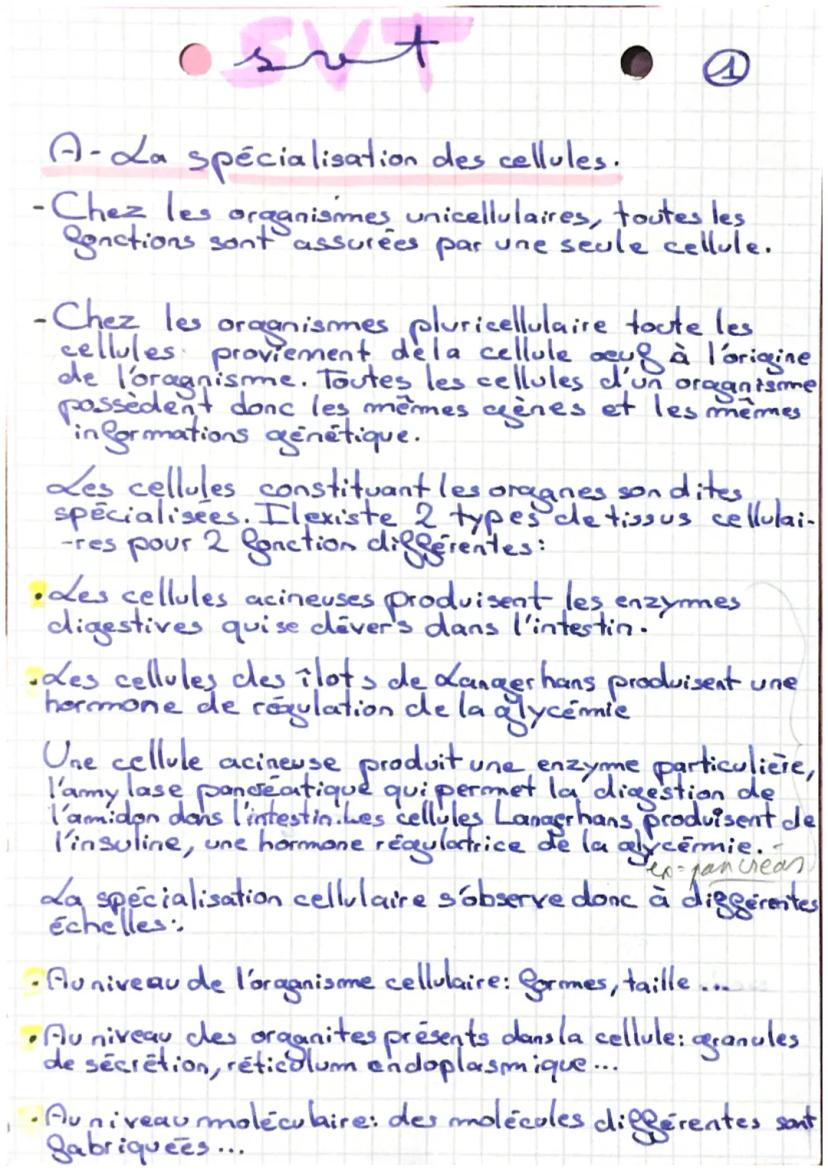 SVT
svt
1
A - La spécialisation des cellules.
- Chez les organismes unicellulaires, toutes les
fonctions sont assurées par une seule cellule.
- Chez les organismes pluricellulaire toute les
cellules proviement de la cellule oeuf à l'origine
de l'oragnisme. Toutes les cellules d'un oragnisme
possèdent donc les mêmes gènes et les mêmes
informations génétique.
Les cellules constituant les organes son dites
spécialisées. Il existe 2 types de tissus cellulai-
-res pour 2 fonction différentes:
• Les cellules acineuses produisent les enzymes
digestives qui se dévers dans l'intestin.
• Les cellules des îlots de Langerhans produisent une
hormone de régulation de la glycémie
Une cellule acineuse produit une enzyme particulière,
l'amylase pancréatique qui permet la digestion de
l'amidon dans l'intestin. Les cellules Langerhans produisent de
l'insuline, une hormone régulatrice de la glycémie.
ex = pancréas
La spécialisation cellulaire s'observe donc à différentes
échelles:
• Au niveau de l'oragnisme cellulaire: formes, taille ...
• Au niveau des organites présents dans la cellule: granules
de sécrétion, réticulum endoplasmique...
• Au niveau moléculaire: des molécules différentes sont
fabriquées...